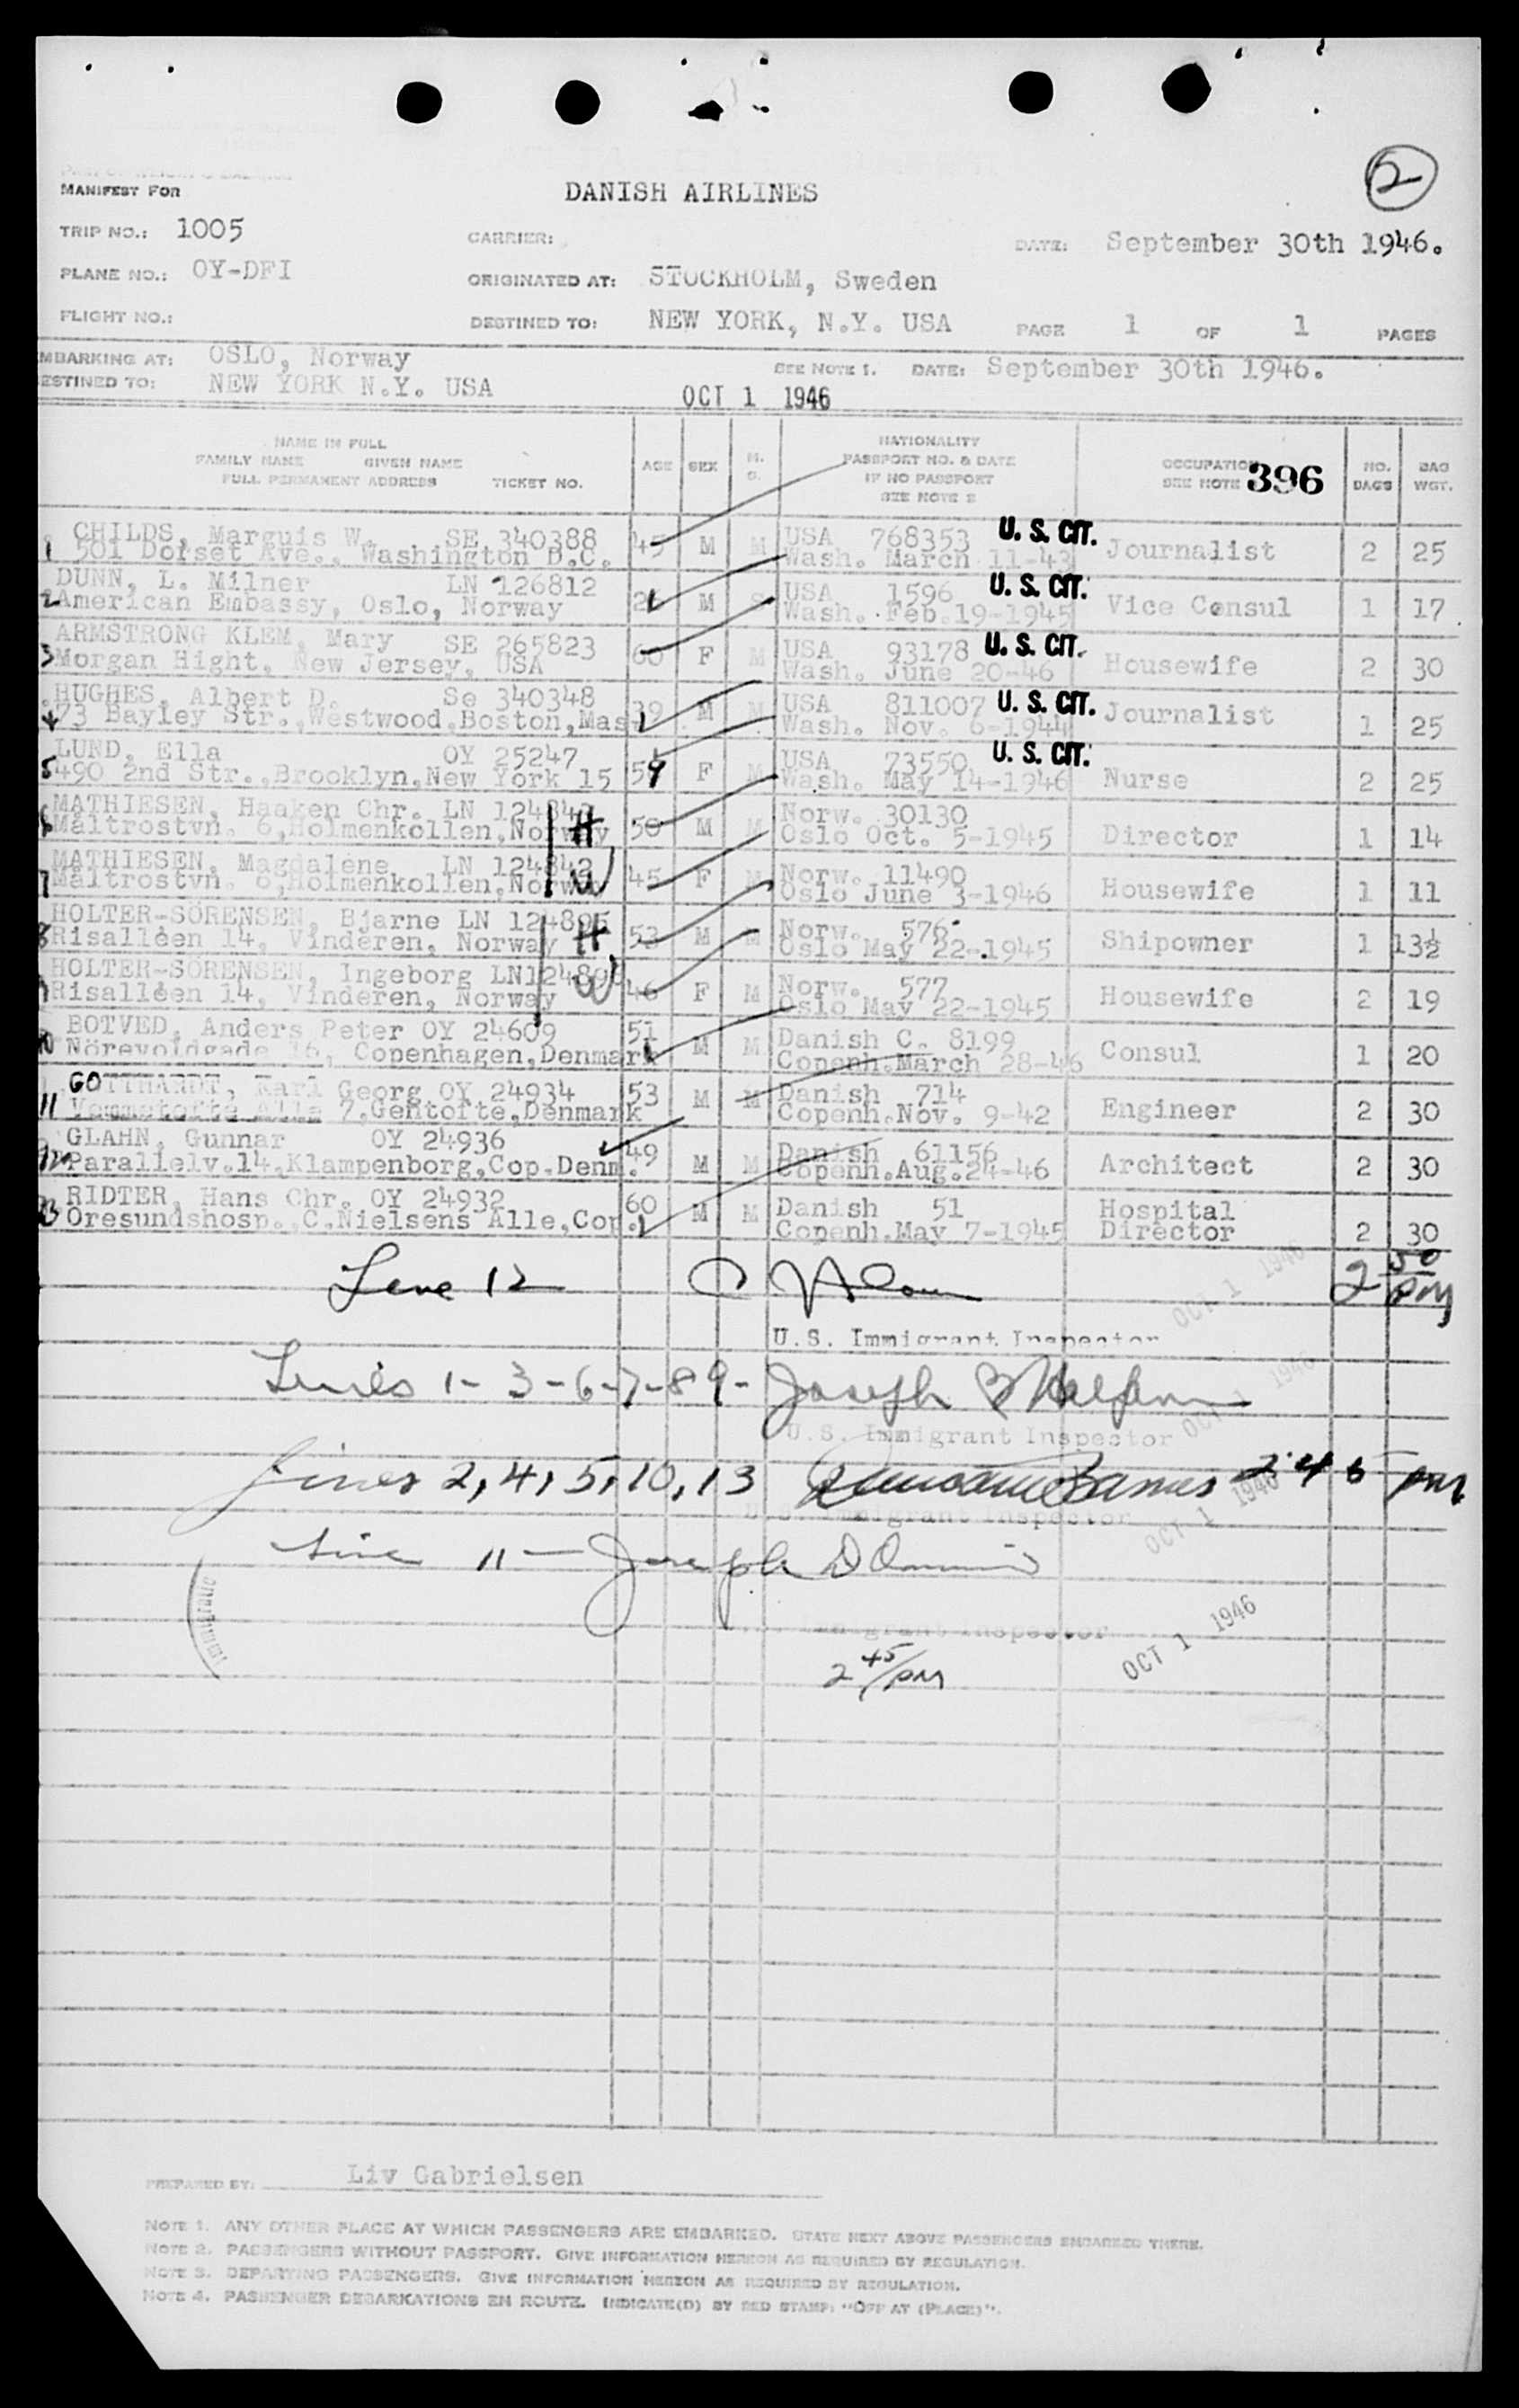 2
MANIFEST FOR
DANISH AIRLINES
TRIP NO.: 1005
CARRIER:
DATE: September 30th 1946.
PLANE NO.: OY-DFI
ORIGINATED AT: STOCKHOLM, Sweden
FLIGHT NO.:
DESTINED TO: NEW YORK, N.Y. USA
PAGE 1 OF 1 PAGES
MBARKING AT: OSLO, Norway
SEE NOTE 1. DATE: September 30th 1946.
ESTINED TO: NEW YORK N.Y. USA
OCT 1 1946
NAME IN FULL
FAMILY NAME GIVEN NAME
FULL PERMANENT ADDRESS TICKET NO.
AGE SEX M. S.
NATIONALITY
PASSPORT NO. & DATE
IF NO PASSPORT
SEE NOTE 2
OCCUPATION
SEE NOTE 396
NO. BAGS
BAG WGT.
1 CHILDS, Marguis W. SE 340388 45 M M USA 768353 U. S. CIT. Journalist 2 25
501 Dorset Ave., Washington D.C. Wash. March 11-43
2 DUNN, L. Milner LN 126812 M S USA 1596 U. S. CIT. Vice Consul 1 17
American Embassy, Oslo, Norway Wash. Feb.19-1945
3 ARMSTRONG KLEM, Mary SE 265823 60 F M USA 93178 U. S. CIT. Housewife 2 30
Morgan Hight, New Jersey, USA Wash. June 20-46
4 HUGHES, Albert D. Se 340348 39 M M USA 811007 U. S. CIT. Journalist 1 25
73 Bayley Str., Westwood,Boston,Mas Wash. Nov. 6-1944
5 LUND, Ella OY 25247 F M USA 73550 U. S. CIT. Nurse 2 25
490 2nd Str.,Brooklyn,New York 15 Wash. May 14-1946
6 MATHIESEN, Haaken Chr. LN 124843 H 50 M M Norw. 30130 Director 1 14
Måltrostvn. 6,Holmenkollen,Norway Oslo Oct. 5-1945
7 MATHIESEN, Magdalene LN 124842 W 45 F M Norw. 11490 Housewife 1 11
Måltrostvn. 6,Holmenkollen,Norway Oslo June 3-1946
8 HOLTER-SÖRENSEN, Bjarne LN 124895 H 53 M M Norw. 576 Shipowner 1 13½
Risalléen 14, Vinderen, Norway Oslo May 22-1945
9 HOLTER-SÖRENSEN, Ingeborg LN124896 W 46 F M Norw. 577 Housewife 2 19
Risalléen 14, Vinderen, Norway Oslo May 22-1945
10 BOTVED, Anders Peter OY 24609 51 M M Danish C. 8199 Consul 1 20
Nörevoldgade 16, Copenhagen,Denmark Copenh.March 28-46
11 GOTTHARDT, Karl Georg OY 24934 53 M M Danish 714 Engineer 2 30
7,Gentofte,Denmark Copenh.Nov. 9-42
12 GLAHN, Gunnar OY 24936 49 M M Danish 61156 Architect 2 30
Parallelv.14,Klampenborg,Cop.Denm. Copenh.Aug.24-46
13 RIDTER, Hans Chr. OY 24932 60 M M Danish 51 Hospital
Oresundshosp.,C.Nielsens Alle,Cop. Copenh.May 7-1945 Director 2 30
Line 12
2 50 PM
OCT 1 1946
U.S. Immigrant Inspector
Lines 1-3-6-7-8 9- Joseph
OCT 1 1946
U.S. Immigrant Inspector
Lines 2, 4, 5, 10, 13 2 45 PM
U.S. Immigrant Inspector
OCT 1 1946
Line 11 — Joseph D
Immigrant Inspector
OCT 1 1946
2 45/PM
PREPARED BY: Liv Gabrielsen
NOTE 1. ANY OTHER PLACE AT WHICH PASSENGERS ARE EMBARKED. STATE NEXT ABOVE PASSENGERS EMBARKED THERE.
NOTE 2. PASSENGERS WITHOUT PASSPORT. GIVE INFORMATION HEREON AS REQUIRED BY REGULATION.
NOTE 3. DEPARTING PASSENGERS. GIVE INFORMATION HEREON AS REQUIRED BY REGULATION.
NOTE 4. PASSENGER DEBARKATIONS EN ROUTE. INDICATE(D) BY RED STAMP: "OFF AT (PLACE)".